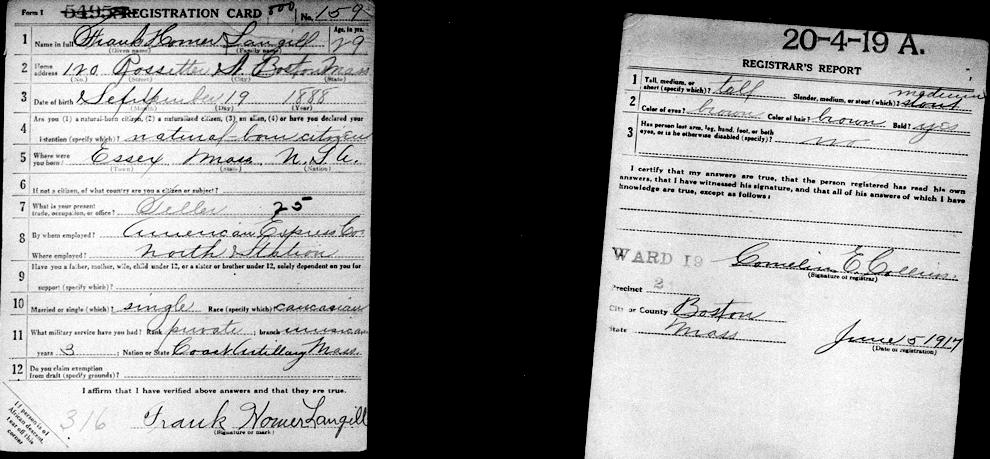 Form 1 5495 REGISTRATION CARD 500 No. 159
1 Name in full Frank Homer Langill Age, in yrs. 29
(Given name) (Family name)
2 Home address 120 Rossetter St Boston Mass
(No.) (Street) (City) (State)
3 Date of birth September 19 1888
(Month) (Day) (Year)
4 Are you (1) a natural-born citizen, (2) a naturalized citizen, (3) an alien, (4) or have you declared your
intention (specify which)? natural born citizen
5 Where were you born? Essex Mass U.S.A.
(Town) (State) (Nation)
6 If not a citizen, of what country are you a citizen or subject?
7 What is your present trade, occupation, or office? Teller 25
8 By whom employed? American Express Co.
Where employed? North Station
9 Have you a father, mother, wife, child under 12, or a sister or brother under 12, solely dependent on you for
support (specify which)?
10 Married or single (which)? single Race (specify which)? caucasian
11 What military service have you had? Rank private ; branch musician
years 3 ; Nation or State Coast Artillery Mass.
12 Do you claim exemption from draft (specify grounds)?
I affirm that I have verified above answers and that they are true.
316 Frank Homer Langill
(Signature or mark)
If person is of African descent, tear off this corner
20-4-19 A.
REGISTRAR'S REPORT
1 Tall, medium, or short (specify which)? tall Slender, medium, or stout (which)? medium stout
2 Color of eyes? brown Color of hair? brown Bald? yes
3 Has person lost arm, leg, hand, foot, or both eyes, or is he otherwise disabled (specify)? no
I certify that my answers are true, that the person registered has read his own
answers, that I have witnessed his signature, and that all of his answers of which I have
knowledge are true, except as follows:
WARD 19 Cornelius E. Collins
(Signature of registrar)
Precinct 2
City or County Boston
State Mass June 5 1917
(Date of registration)